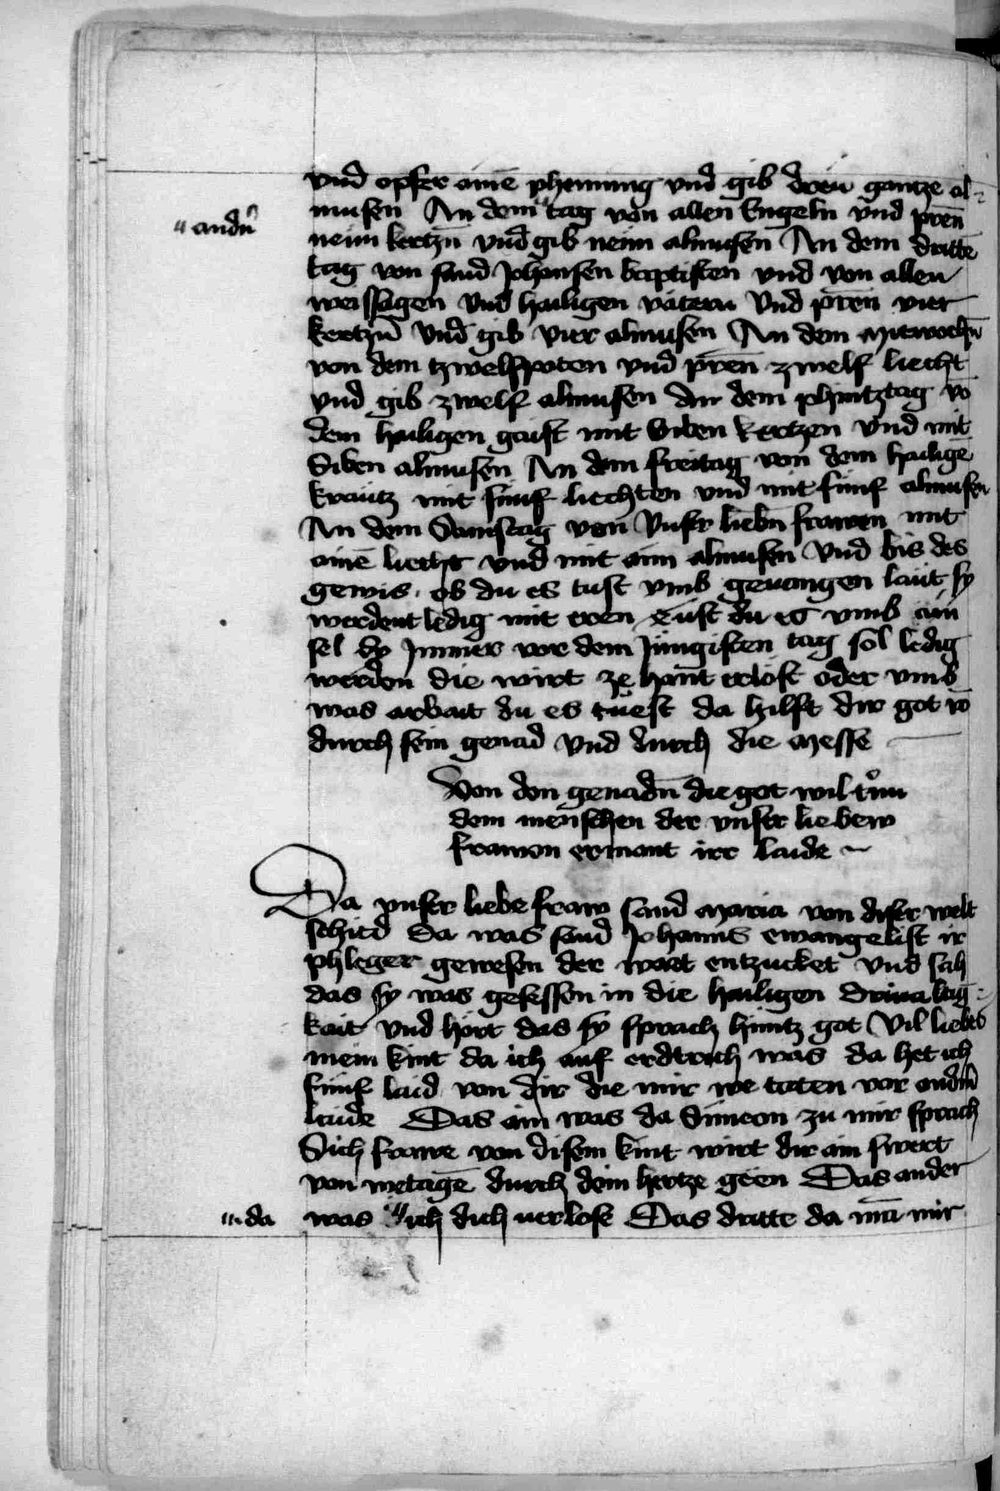 vnd opfer ainē phenning vnd gib dreu gantze al-
musen An dem " tag von allen Engeln vnd prēn
" andn̄
neun kertzn̄ vnd gib neun almusen An dem drittē
tag von sand Johansen baptisten vnd von allen
weissagen vnd hailigen vätern vnd prēn vier
kertzn̄ vnd gib vier almusen An dem mitwochn̄
von dem tzwelfpoten vnd prēn zwelf liecht
vnd gib zwelf almusen An dem phintztag vō
dem hailigen gaist mit siben kertzen vnd mit
siben almusen An dem freitag von dem hailigē
kräutz mit fünf liechten vnd mit fünf almusen
An dem Samstag von vnser liebn̄ frawen mit
ainē liecht vnd mit aim almusen vnd bis des
gewis ob du es tust vmb geuangen läut sy
werdent ledig mit eren tust du es vmb ain
sel dy Jmmer vor dem Jungisten tag sol ledig
werden die wirt ze hant erlöst oder vmb
was arbait du es tüest da hilft dir got vō
durch sein genad vnd durch die messe
Von den genadn̄ die got wil tůn
dem menschen der vnser lieben
frawen ermant irr laide
Da vnser liebe fraw sand maria von diser welt
schied Da was sand Johanns ewangelist ir
phleger gewesen der wart entzucket vnd sah
das sy was gesessen in die hailigen driualtig-
kait vnd hört das sy sprach hintz got Vil liebes
mein kint da ich auf erdtrich was da het ich
fünf laid von dir die mir we taten vor andn̄
laide Das ain was da Simeon zu mir sprach
Sich frawe von disem kint wirt dir ain swert
von wetagē durch dein hertze geen Das ander
was " ich dich verlose Das dritte da mā mir
"' da